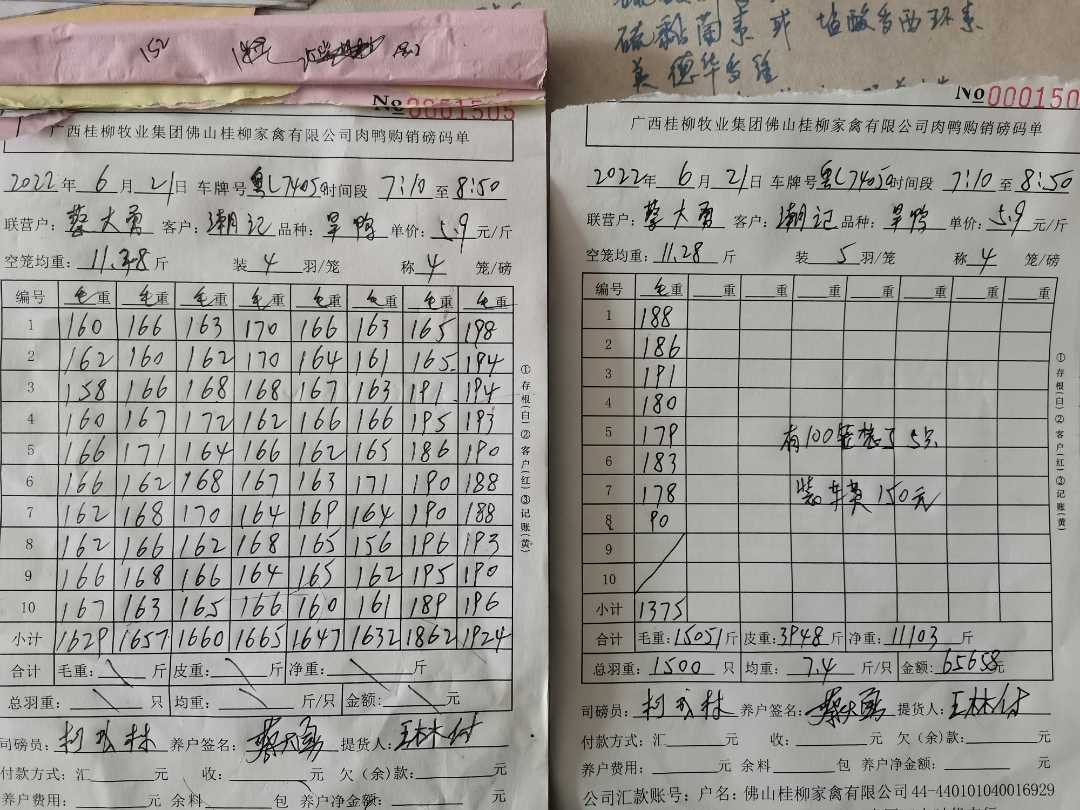 硫黏菌素 或 盐酸多西环素
英德华
152
No 0001505
广西桂柳牧业集团佛山桂柳家禽有限公司肉鸭购销磅码单
2022年 6月 21日 车牌号 粤L74050 时间段 7:10 至 8:50
联营户：蔡大勇 客户：潮记 品种：旱鸭 单价：5.9 元/斤
空笼均重： 斤 装 4 羽/笼 称 4 笼/磅
编号 毛重 毛重 毛重 毛重 毛重 毛重 毛重 毛重
1 160 166 163 170 166 163 165 198
2 162 160 162 170 164 161 165 194
3 158 166 168 168 167 163 191 194
4 160 167 172 162 166 166 195 193
5 166 171 164 166 162 165 186 190
6 166 162 168 167 163 171 190 188
7 162 168 170 164 169 164 190 188
8 162 166 162 168 165 156 196 193
9 166 168 166 164 165 162 195 190
10 167 163 165 166 160 161 189 196
小计 1629 1657 1660 1665 1647 1632 1862 1924
合计 毛重： 斤 皮重： 斤 净重： 斤
总羽重： 只 均重： 斤/只 金额： 元
司磅员： 柯成林 养户签名：蔡大勇 提货人：王林付
付款方式：汇 元 收： 元 欠（余）款： 元
养户费用： 元 余料 包 养户净金额： 元
①存根(白)②客户(红)③记账(黄)
No 000150
广西桂柳牧业集团佛山桂柳家禽有限公司肉鸭购销磅码单
2022年 6月 21日 车牌号 粤L74050 时间段 7:10 至 8:50
联营户：蔡大勇 客户：潮记 品种：旱鸭 单价：5.9 元/斤
空笼均重：11.28 斤 装 5 羽/笼 称 4 笼/磅
编号 毛重 重 重 重 重 重 重 重
1 188
2 186
3 191
4 180
5 179 有100 装了5只
6 183
7 178 装车费150元
8 90
9
10
小计 1375
合计 毛重：15051斤 皮重：3948斤 净重：11103斤
总羽重：1500 只 均重：7.4 斤/只 金额：65658元
司磅员：柯成林 养户签名：蔡大勇 提货人：王林付
付款方式：汇 元 收： 元 欠（余）款： 元
养户费用： 元 余料 包 养户净金额： 元
公司汇款账号：户名：佛山桂柳家禽有限公司 44-440101040016929
①存根(白)②客户(红)③记账(黄)